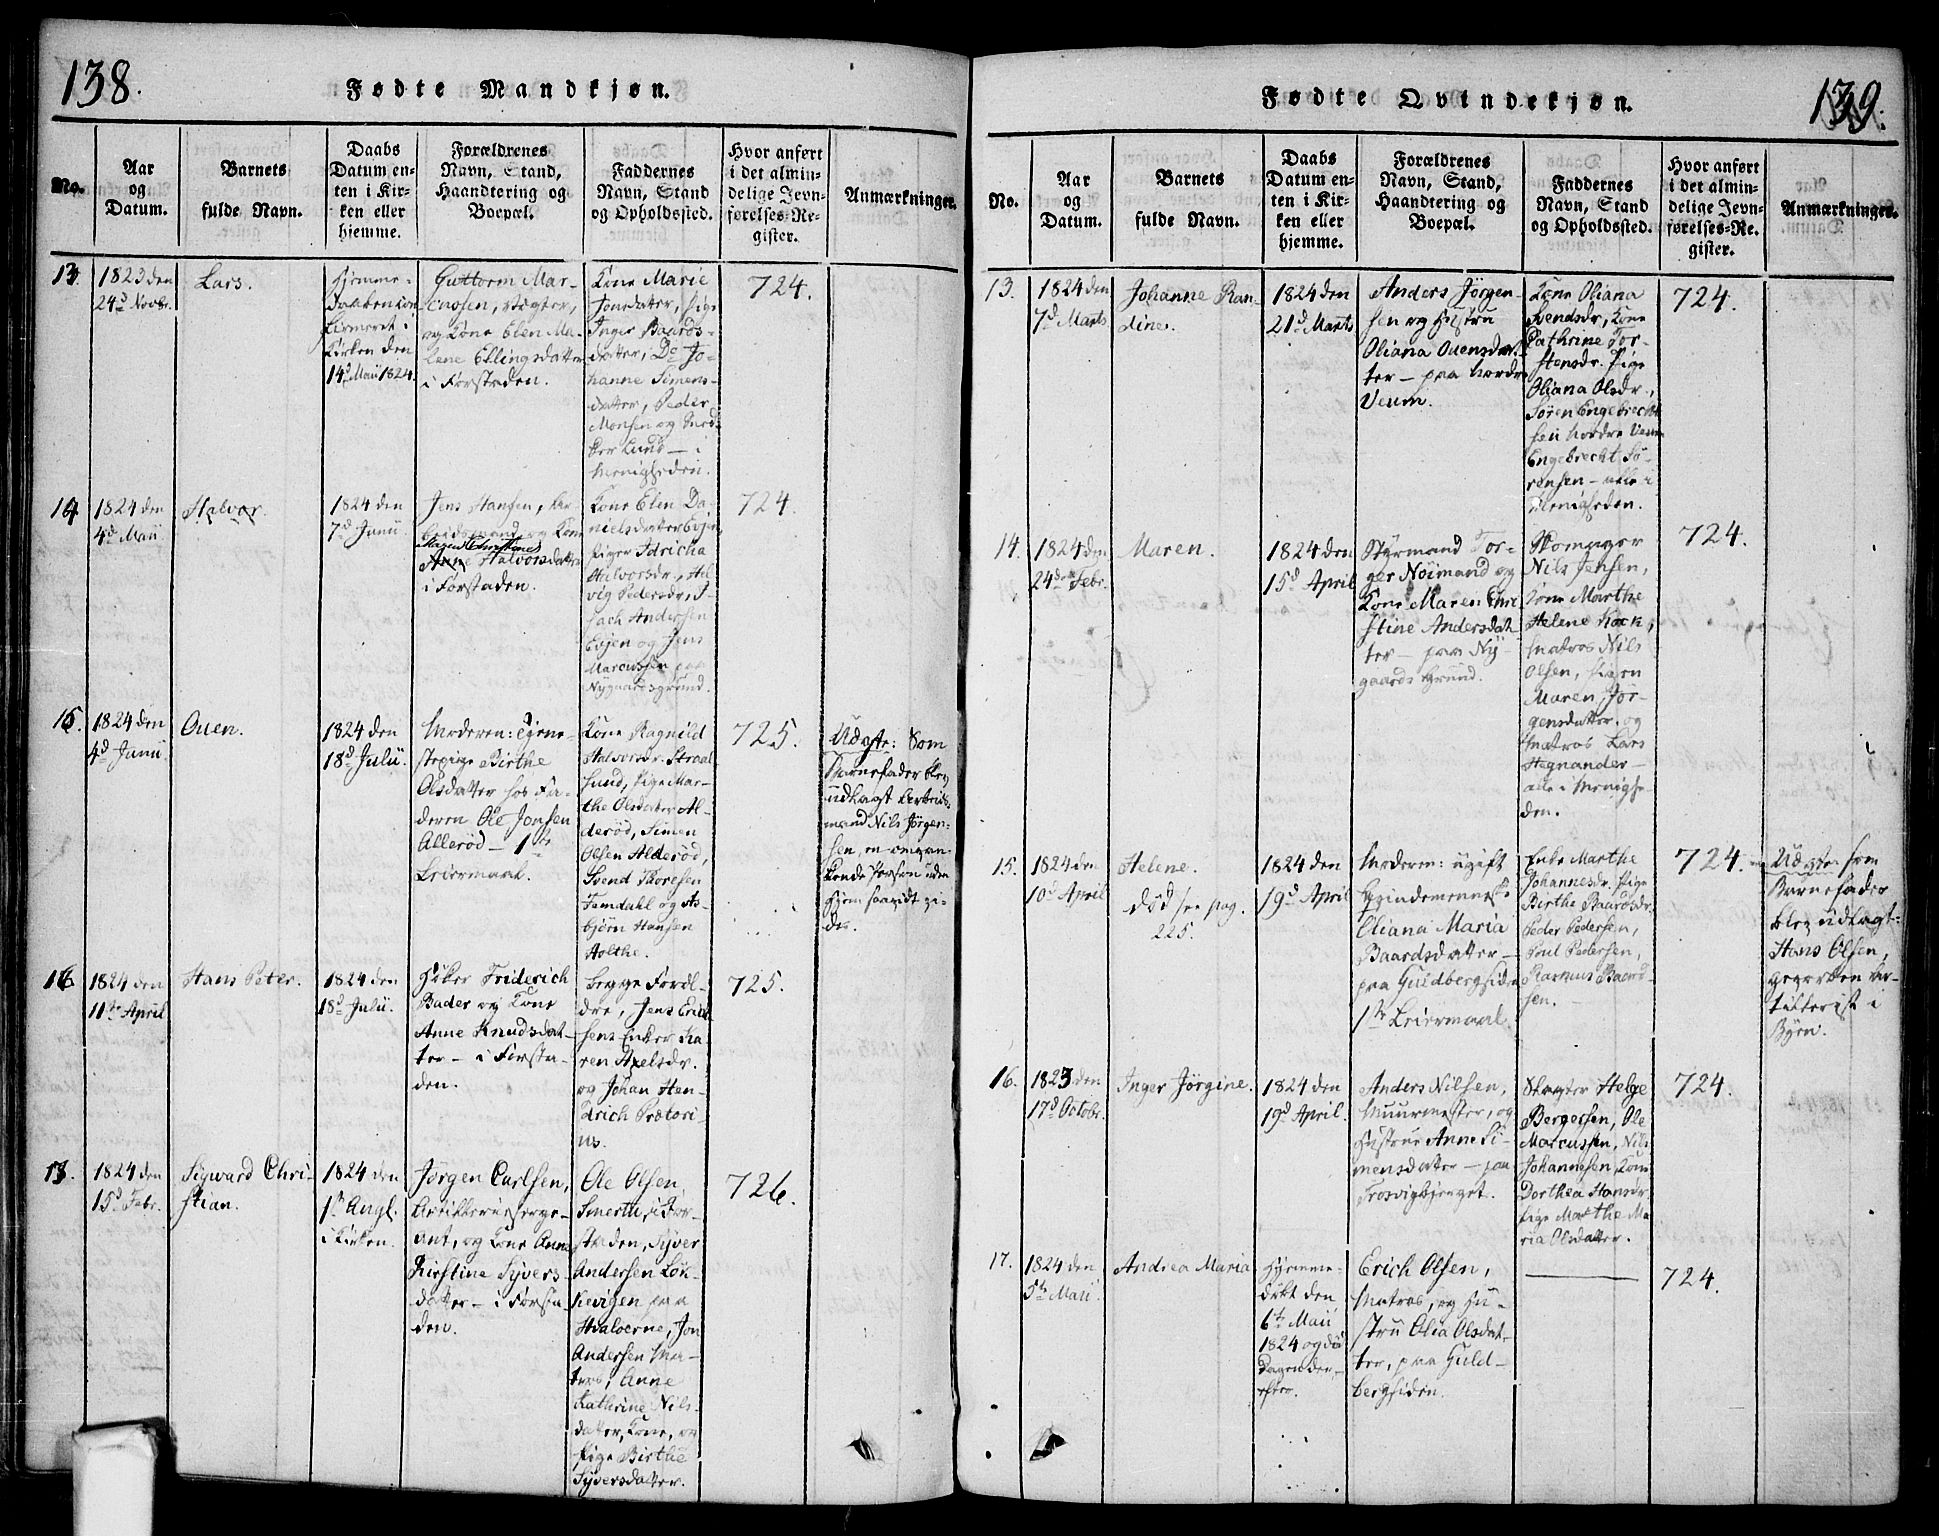 138.
Fødte Mandkjøn.
No.
Aar
og
Datum.
Barnets
fulde Navn.
Daabs
Datum en-
ten i Kir-
ken eller
hjemme.
Forældrenes
Navn, Stand,
Haandtering og
Boepæl.
Faddernes
Navn, Stand
og Opholdssted.
Hvor anført
i det almin-
delige Jevn-
førelses-Re-
gister.
Anmærkninger.
13.
1823 den
24d Novbr.
Lars.
Hjemme-
Kirken den
14d Maii 1824.
Guttorm Mar-
cussen,
og Kone Elen Ma-
lene Ellingsdatter
i Forstaden.
Kone Marie
Jonsdatter, Pige
Inger Baards-
datter, Do Jo-
hanne Simens-
datter, Peder
Monsen og
Lund — i
Menigheden.
724.
14
1824 den
4d Maii
Halvor.
1824 den
7d Junii
Jens Hansen, Ar-
beidsmand og Kone
Maren Christiane
Anne Halvorsdatter
i Forstaden.
Kone Elen Da-
nielsdatter Evjen
Piger Idricha
Halvorsdr., Hel-
vig Pedersdr., I-
sach Andersen
Evjen og Jens
Marcussen paa
Nygaardsgrund.
724.
15.
1824 den
4d Junii
Ouen.
1824 den
18d Julii.
Moderen: Tjene-
stepige Birthe
Olsdatter hos Fa-
deren Ole Jonsen
Allerød — 1ste
Leiermaal.
Kone Ragnild
Halvorsdr. Straal-
sund, Pige Mar-
the Olsdatter Al-
derød, Simen
Olsen Alderød,
Svend Thoresen
Femdahl og As-
bjørn Hansen
Holthe.
725.
Udgte: Som
Barnefader blev
udlagt Arbeids-
mand Nils Jørgen-
sen, en omvan-
kende Person uden
Hjem saavidt vi-
des.
16
1824 den
11te April
Hans Peter.
1824 den
18d Julii.
Høker Friderich
Bader og Kone
Anne Knudsdat-
ter — i Forsta-
den.
begge Foræl-
dre, Jens Erich-
sens Enke Ka-
ren Axelsdr.
og Johan Hen-
drich Prætori-
us.
725.
1824 den
15d Febr.
Syward Chri-
stian.
1824 den
1ste Augt.
i Kirken.
Jørgen Carlsen,
Artilleriesserge-
ant, og Kone Anne
Kirstine Syvers-
datter — i Forsta-
den.
Ole Olsen
Smerth, i For-
staden, Syver
Andersen Løn-
kevigen paa
Hvalöerne, Jon
Andersen Ma-
tros, Anne
Kathrine Nils-
datter, Kone, og
Pige Birthe
Syversdatter.
726.
139.
Fødte Qvindekjøn.
No.
Aar
og
Datum.
Barnets
fulde Navn.
Daabs
Datum en-
ten i Kir-
ken eller
hjemme.
Forældrenes
Navn, Stand,
Haandtering og
Boepæl.
Faddernes
Navn, Stand
og Opholdssted.
Hvor anført
i det almin-
delige Jevn-
førelses-Re-
gister.
Anmærkninger.
13.
1824 den
7d Marts
Johanne Ran-
dine.
1824 den
21d Marts
Anders Jörgen-
sen og Hustru
Oliana Ouensdat-
ter — paa Nordre
Veum.
Kone Oliana
Svendsdr, Kone
Cathrine Tor-
stensdr. Pige
Oliana Olsdr,
Søren Engebrecht-
sen Nordre Veum
Engebrecht Sø-
rensen — alle i
Menigheden.
724.
14.
1824 den
24de Febr.
Maren.
1824 den
15d April
Styrmand Tor-
ger Nöimand og
Kone Maren Chri-
stine Andersdat-
ter — paa Ny-
gaards Grund.
Skomager
Nils Jensen,
Kone Marthe
Helene Kock,
Matros Nils
Olsen, Pigen
Maren Jör-
gensdatter og
Matros Lars
Hegnander —
alle i Menighe-
den.
724.
15.
1824 den
10d April
Helene.
død see pag.
225.
1824 den
19d April
Moderen: ugift
Qvindemenneske
Oliana Maria
Baardsdatter —
paa Guldbergsiden
1ste Leiermaal.
Enke Marthe
Johannesdr. Pige
Birthe Baardsdr.
Peder Pedersen,
Poul Pedersen,
Rasmus Baard-
sen.
724.
Udgte: som
Barnefader
blev udlagt
Hans Olsen,
geworben Ar-
tillerist i
Byen.
16.
1823 den
17d Octobr.
Inger Jörgine.
1824 den
19d April.
Anders Nilsen,
Muurmester, og
Hustrue Anne Si-
mensdatter — paa
Trosvigbjerget.
Slagter Helge
Bergersen, Ole
Marcussen, Nils
Johannesen, Kone
Dorthea Hansdr.
Pige Marthe Ma-
ria Olsdatter.
724.
17.
1824 den
5te Maii.
Andrea Maria
Hjemme-
døbt den
6te Maii
1824 og død
Dagen der-
efter.
Erich Olsen,
Matros, og Hu-
stru Olia Olsdat-
ter, paa Guld-
bergsiden.
724.